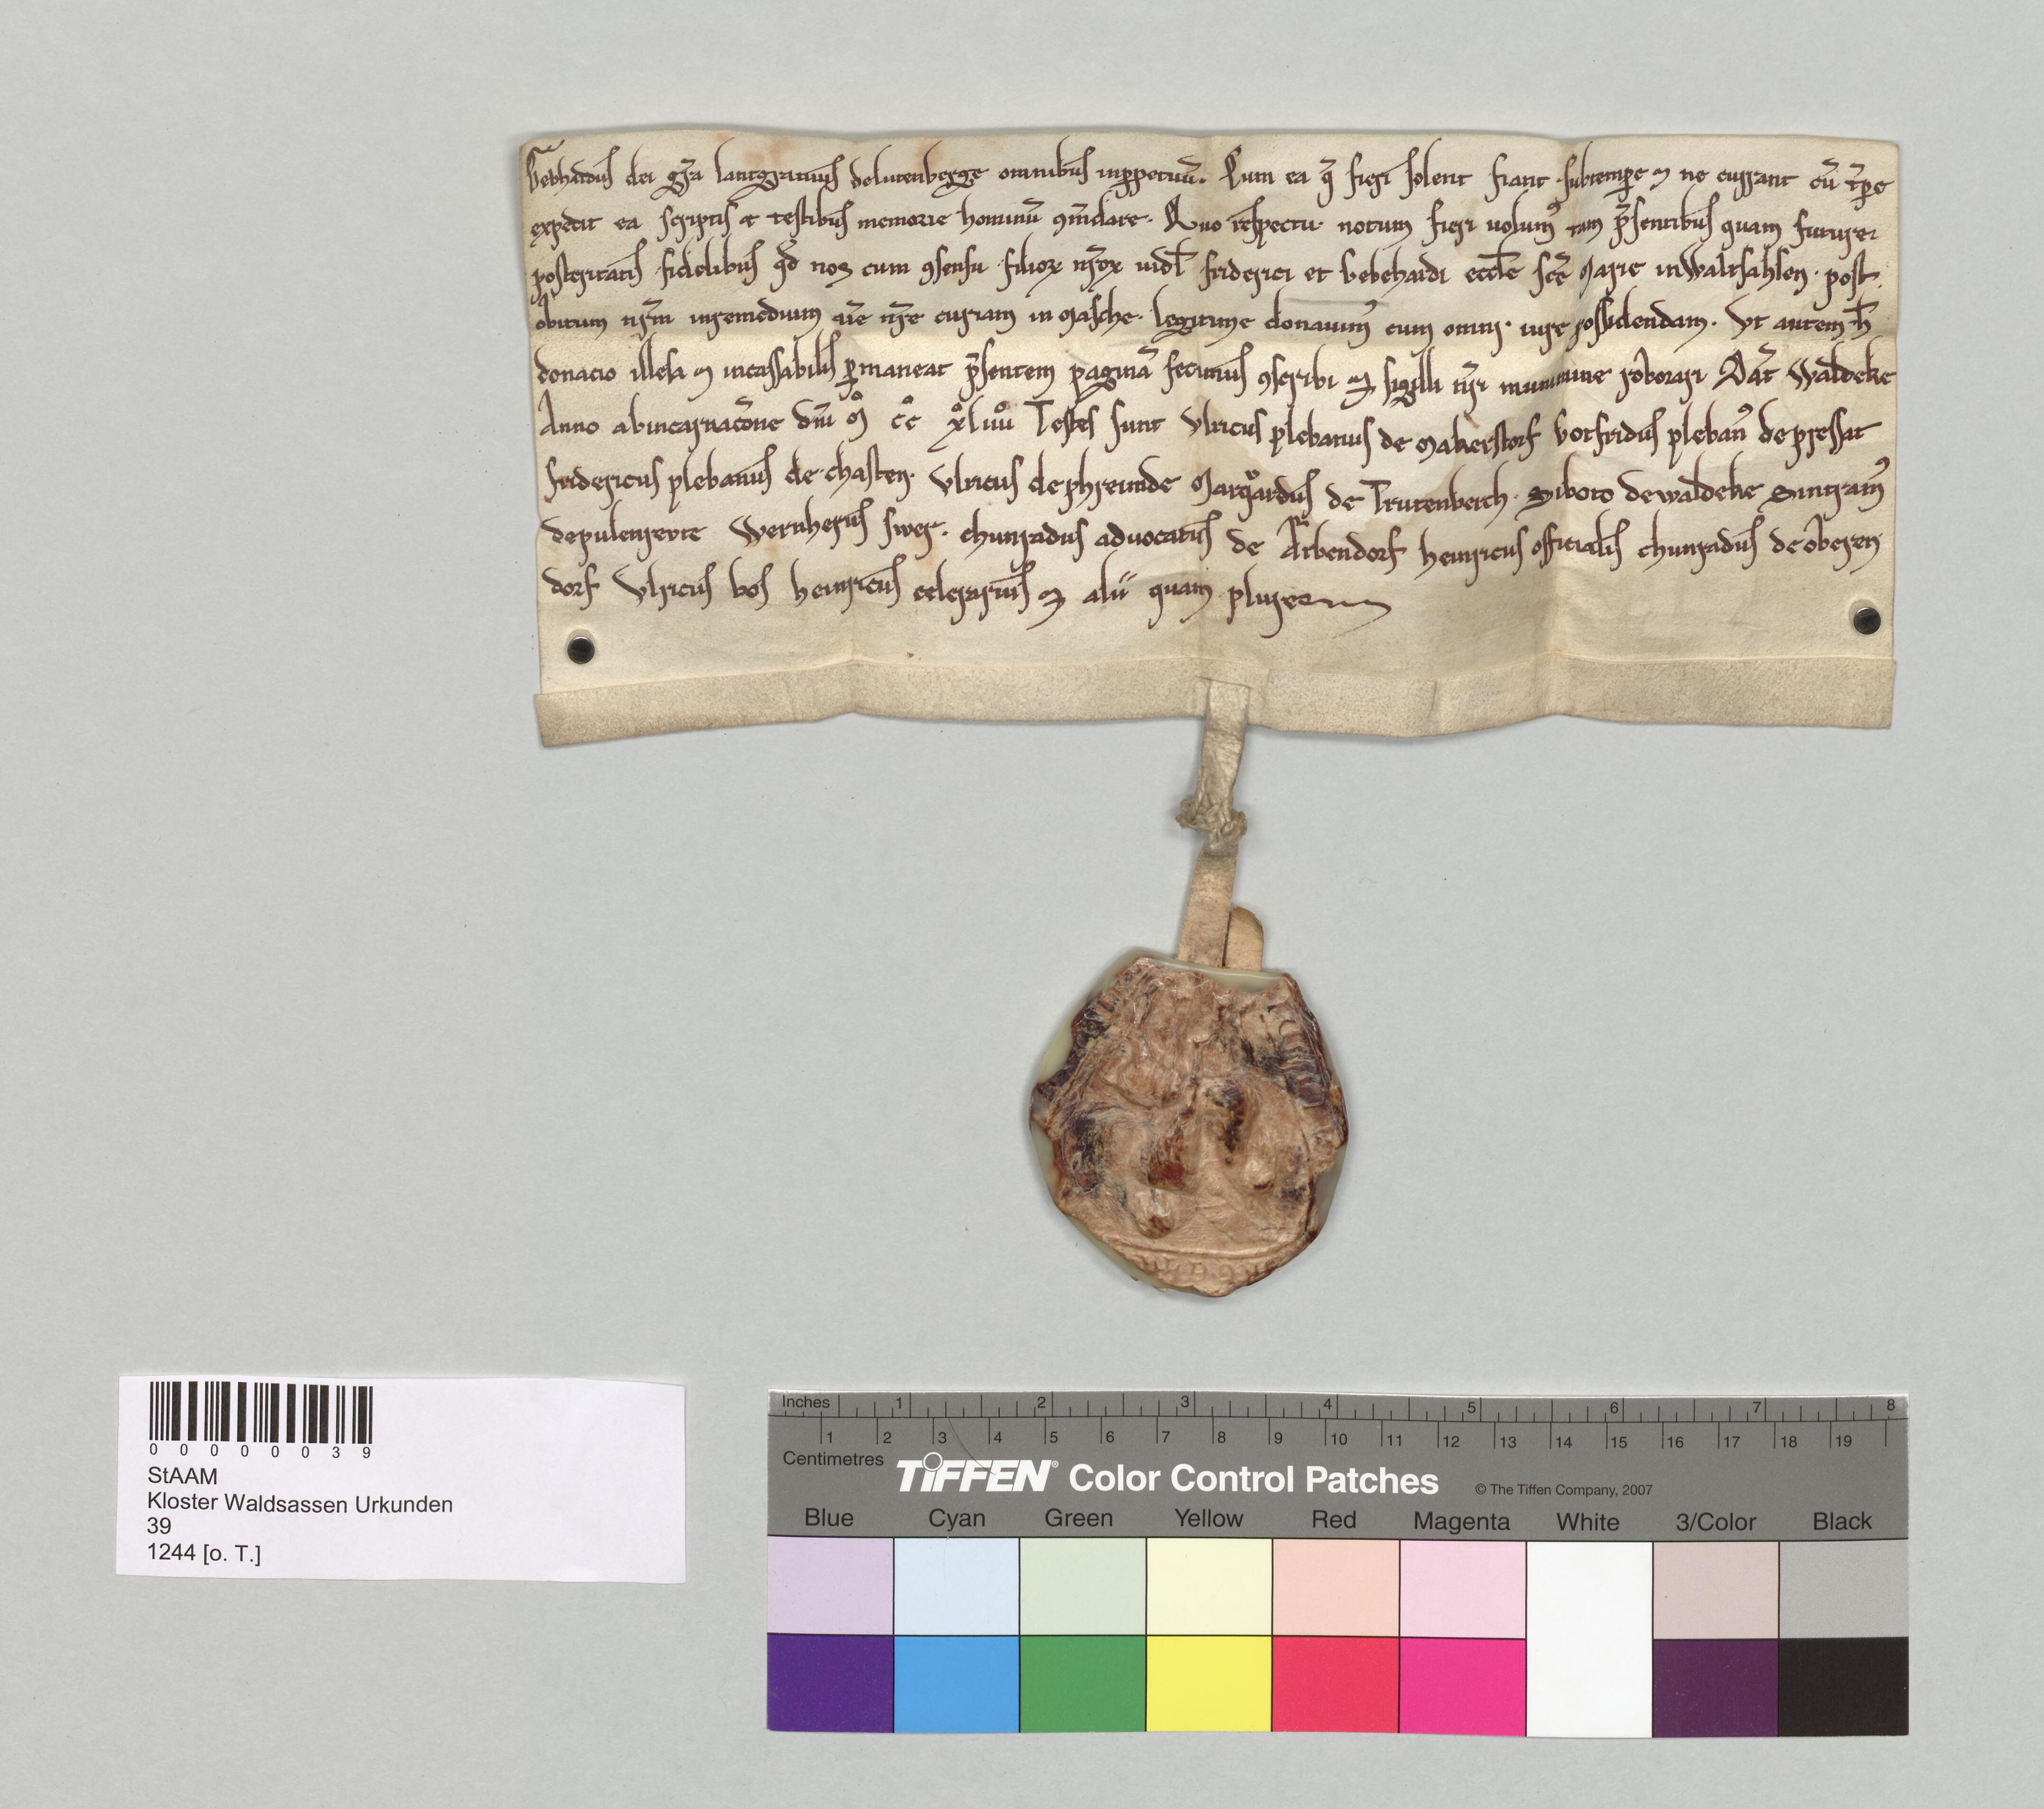 Gebhardus dei gr̄a lantgravius de lutenberge omnibus inp̄petuū. Cum ea q̄ fieri solent fiant sub tempore ⁊ ne currant cū tp̄e
expedit ea scriptis et testibus memorie hominū ꝯm̄dare. Quo respectu notum fieri volumꝰ tam p̄sentibus quam futurei
posteritatis fidelibus qd̄ nos cum ꝯsensu filioꝝ nr̄oꝝ vidl̄ friderici et Gebehardi eccl̄e sc̄e Marie in Waltsahsen. post.
obitum nr̄m in remedium aīe nr̄e curiam in Masche. legitime donavimꝰ cum omni iure possidendam. Ut autem h̄
donacio illesa ⁊ incassabilis ꝑmaneat p̄sentem paginā fecimus ꝯscribi ⁊ sigilli nr̄i munimine roborari Dat̄ Waldeke
Anno ab incarnac̄one dn̄i M° c°c° x°liiii° Testes sunt Ulricus plebanus de Makerstorf Gotfridus plebanꝰ de pressat
fridericus plebanus de chasten. Ulricus de phreimde Marqͦardus de Trutenberch. Siboto de waldeke Suntramꝰ
de pulenrevte Wernherus swer. chunradus advocatus de Arbendorf heinricus officialis chunradus de oberen
dorf Ulricus bos heinricus celerarius ⁊ alii quam plures
0 0 0 0 0 0 3 9
StAAM
Kloster Waldsassen Urkunden
39
1244 [o. T.]
Inches 1 2 3 4 5 6 7 8
1 2 3 4 5 6 7 8 9 10 11 12 13 14 15 16 17 18 19
Centimetres
TIFFEN® Color Control Patches © The Tiffen Company, 2007
Blue Cyan Green Yellow Red Magenta White 3/Color Black